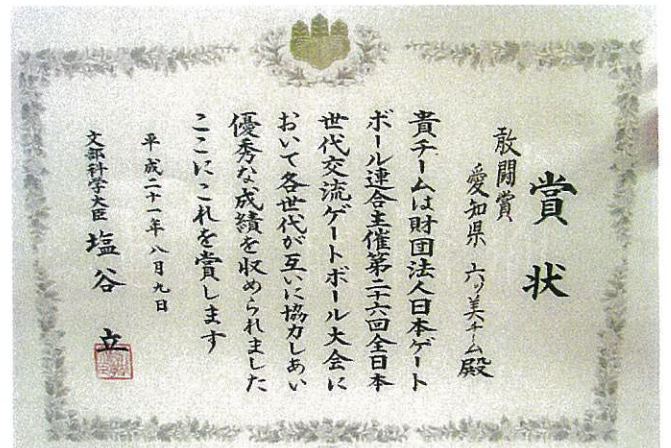 賞状
敢闘賞
愛知県 六ッ美チーム殿
貴チームは財団法人日本ゲート
ボール連合主催第二十六回全日本
世代交流ゲートボール大会に
おいて各世代が互いに協力しあい
優秀な成績を収められました
ここにこれを賞します
平成二十一年八月九日
文部科学大臣 塩谷 立